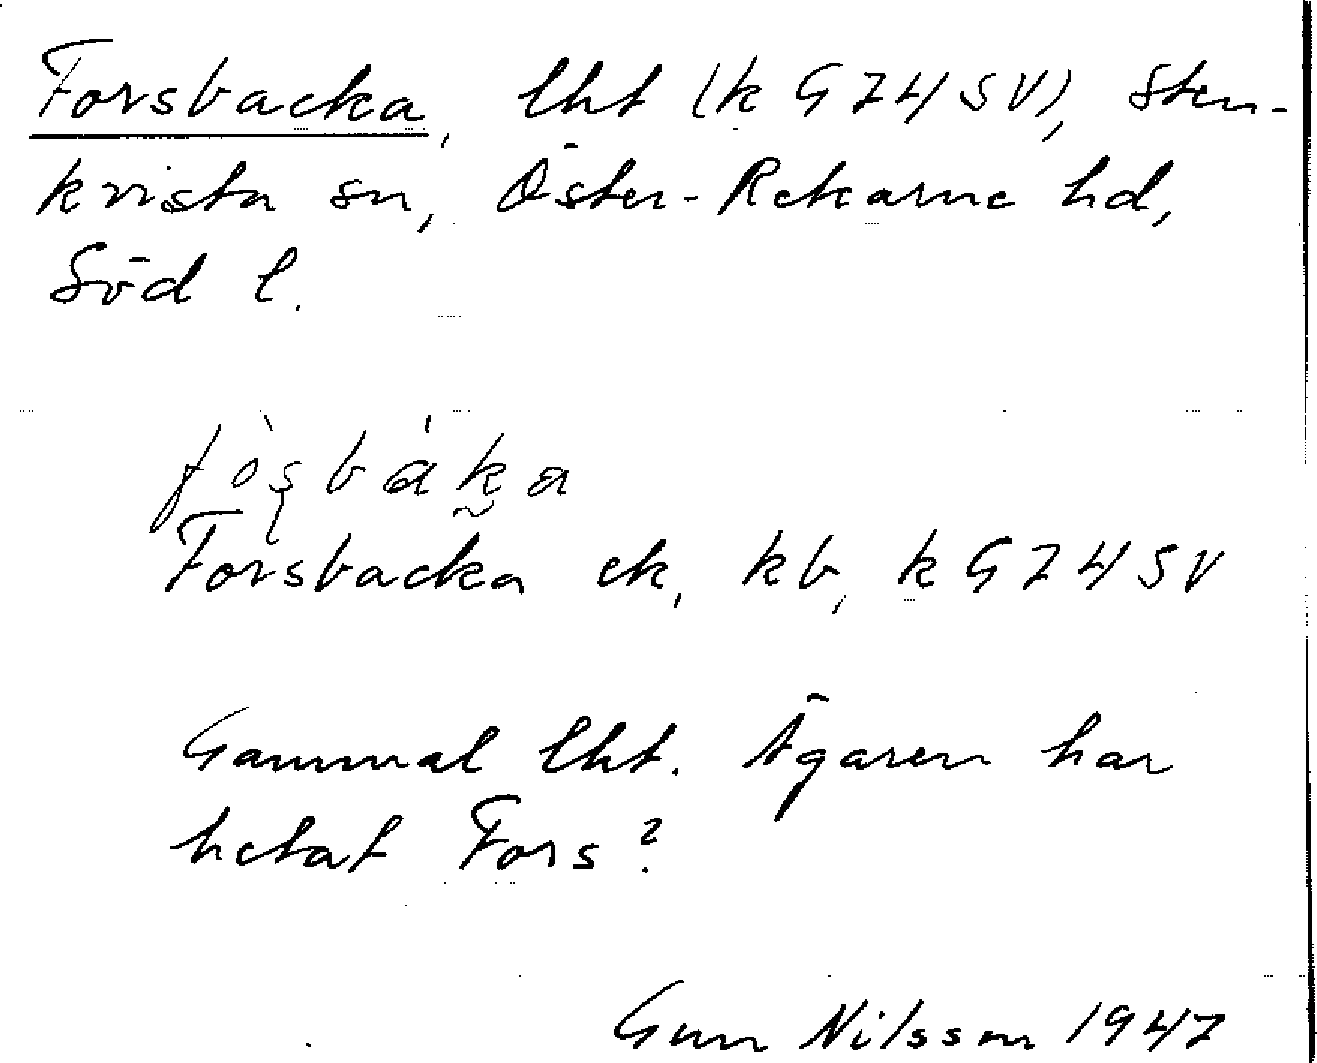 Forsbacka, lht (k G 74 SV), Sten-
kvista sn, Öster-Rekarne hd,
Söd l.
fò̀ʂbáka
Forsbacka ek, kb, k G 74 SV
Gammal lht. Ägaren har
hetat Fors?
Gun Nilsson 1947